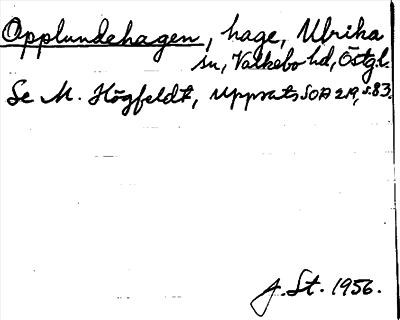 Opplundehagen, hage, Ulrika
sn, Valkebo hd, Östgl.
Se M. Högfeldt, Uppsats SOA 219, s.83.
J. St. 1956.